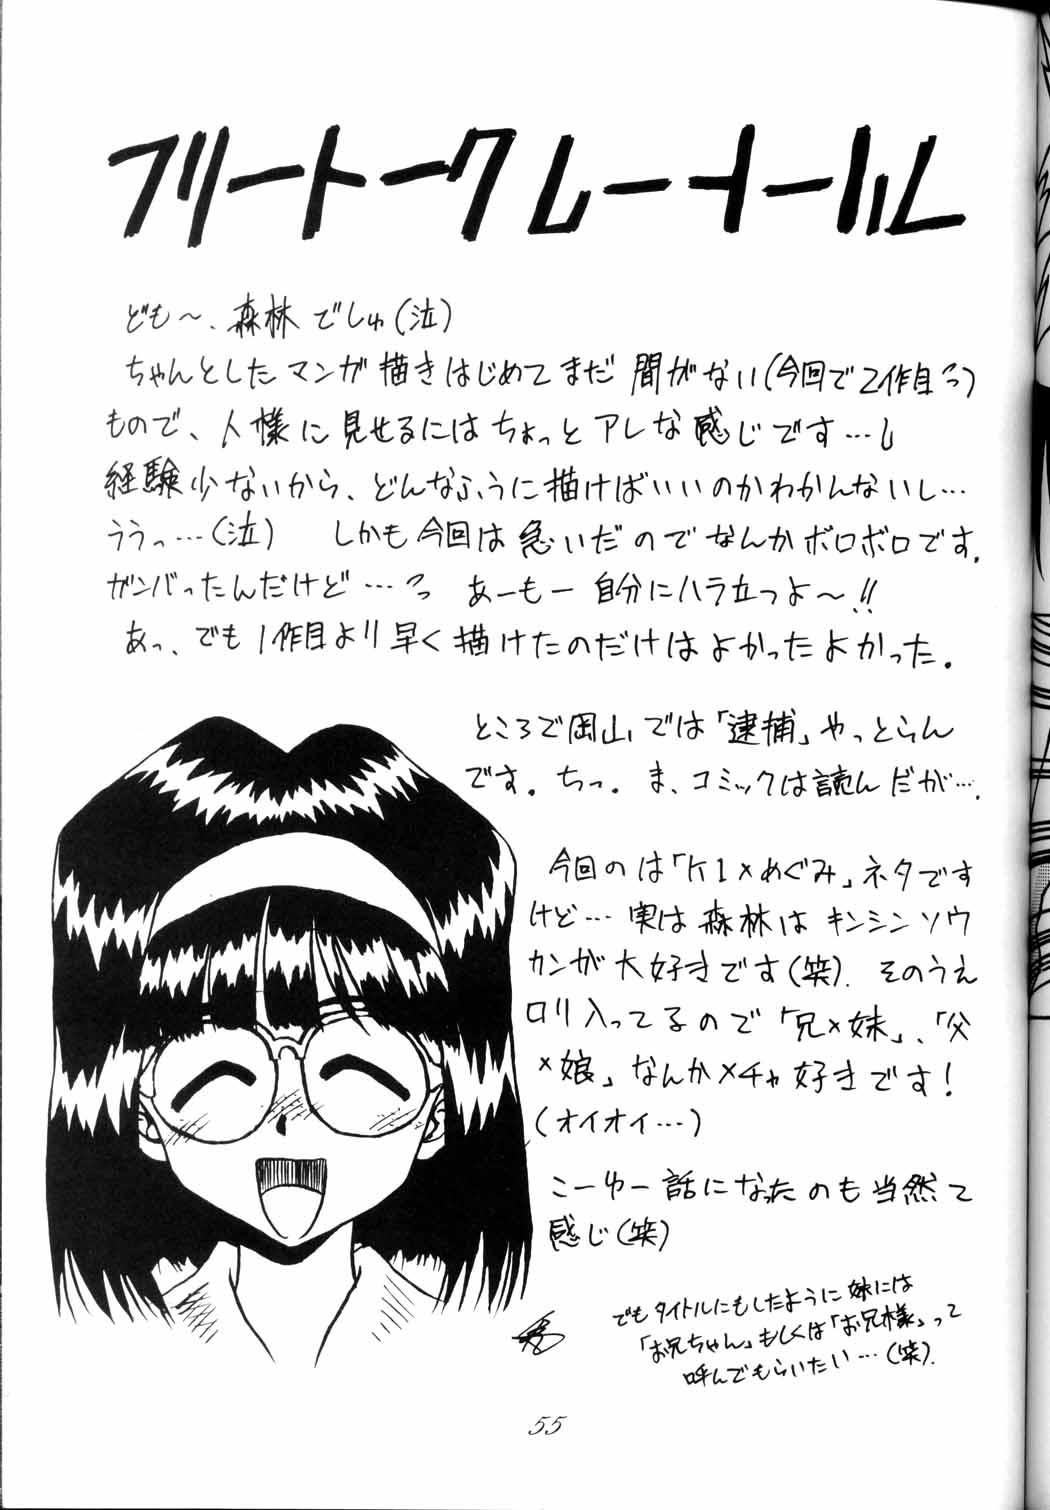 フリートークレーメール
ども～、森林でしゅ(泣)
ちゃんとしたマンガ描きはじめてまだ間がない(今回で2作目っ)
もので、人様に見せるにはちょっとアレな感じです…し
経験少ないから、どんなふうに描けばいいのかわかんないし…
ううっ…(泣) しかも今回は急いだのでなんかボロボロです.
ガンバったんだけど…っ あーもー自分にハラ立つよ～!!
あっ、でも1作目より早く描けたのだけはよかったよかった.
ところで岡山では「逮捕」やっとらん
です. ちっ. ま、コミックは読んだが….
今回のは「K1×めぐみ」ネタです
けど…実は森林はキンシンソウ
カンが大好きです(笑). そのうえ
ロリ入ってるので「兄×妹」、「父
×娘」なんかメチャ好きです!
(オイオイ…)
こーゆー話になったのも当然て
感じ(笑)
でもタイトルにもしたように妹には
「お兄ちゃん」もしくは「お兄様」って
呼んでもらいたい…(笑).
55